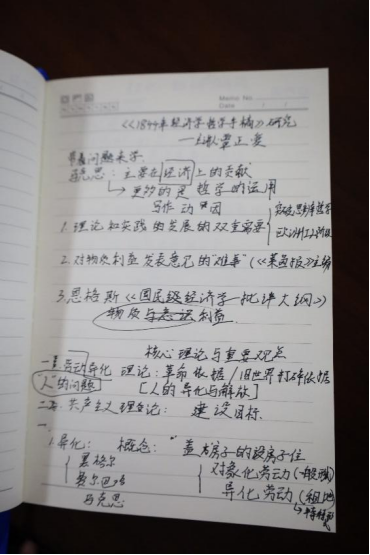 Memo No.
Date / /
《1844年经济学哲学手稿》研究
带着问题来学
马克思：主要在经济上的贡献
更多的是 哲学的运用
写作动因
1. 理论和实践的发展的双重需要
2. 对物质利益发表意见的"难事"（《莱茵报》主编
3. 恩格斯《国民经济学批评大纲》
物质与 利益
核心理论与重要观点
一 劳动异化 理论：革命依据 / 旧世界打碎依据
"人"的问题 [人的异化与解放]
二 共产主义理论： 建设目标
一
1. 异化： 概念："盖房子的没房子住
黑格尔 对象化劳动（一般
费尔巴哈 异化劳动（
马克思